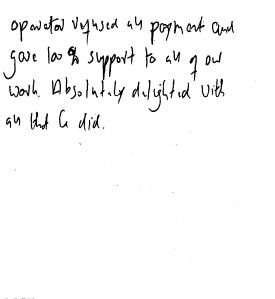 operator refused all payment and
gave 100% support to all of our
work. Absolutely delighted with
all that he did.